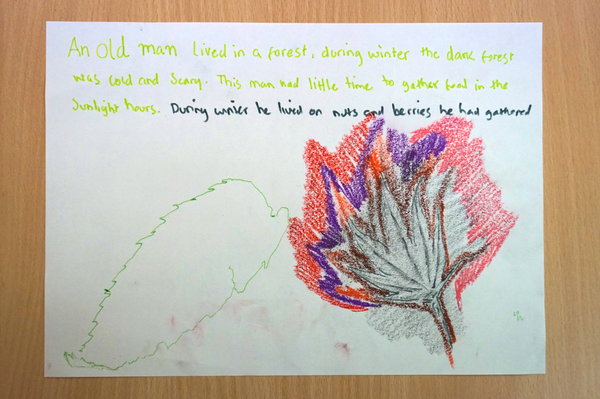 An Old man lived in a forest, during winter the dark forest
was cold and scary. This man had little time to gather food in the
Sunlight hours. During winter he lived on nuts and berries he had gathered